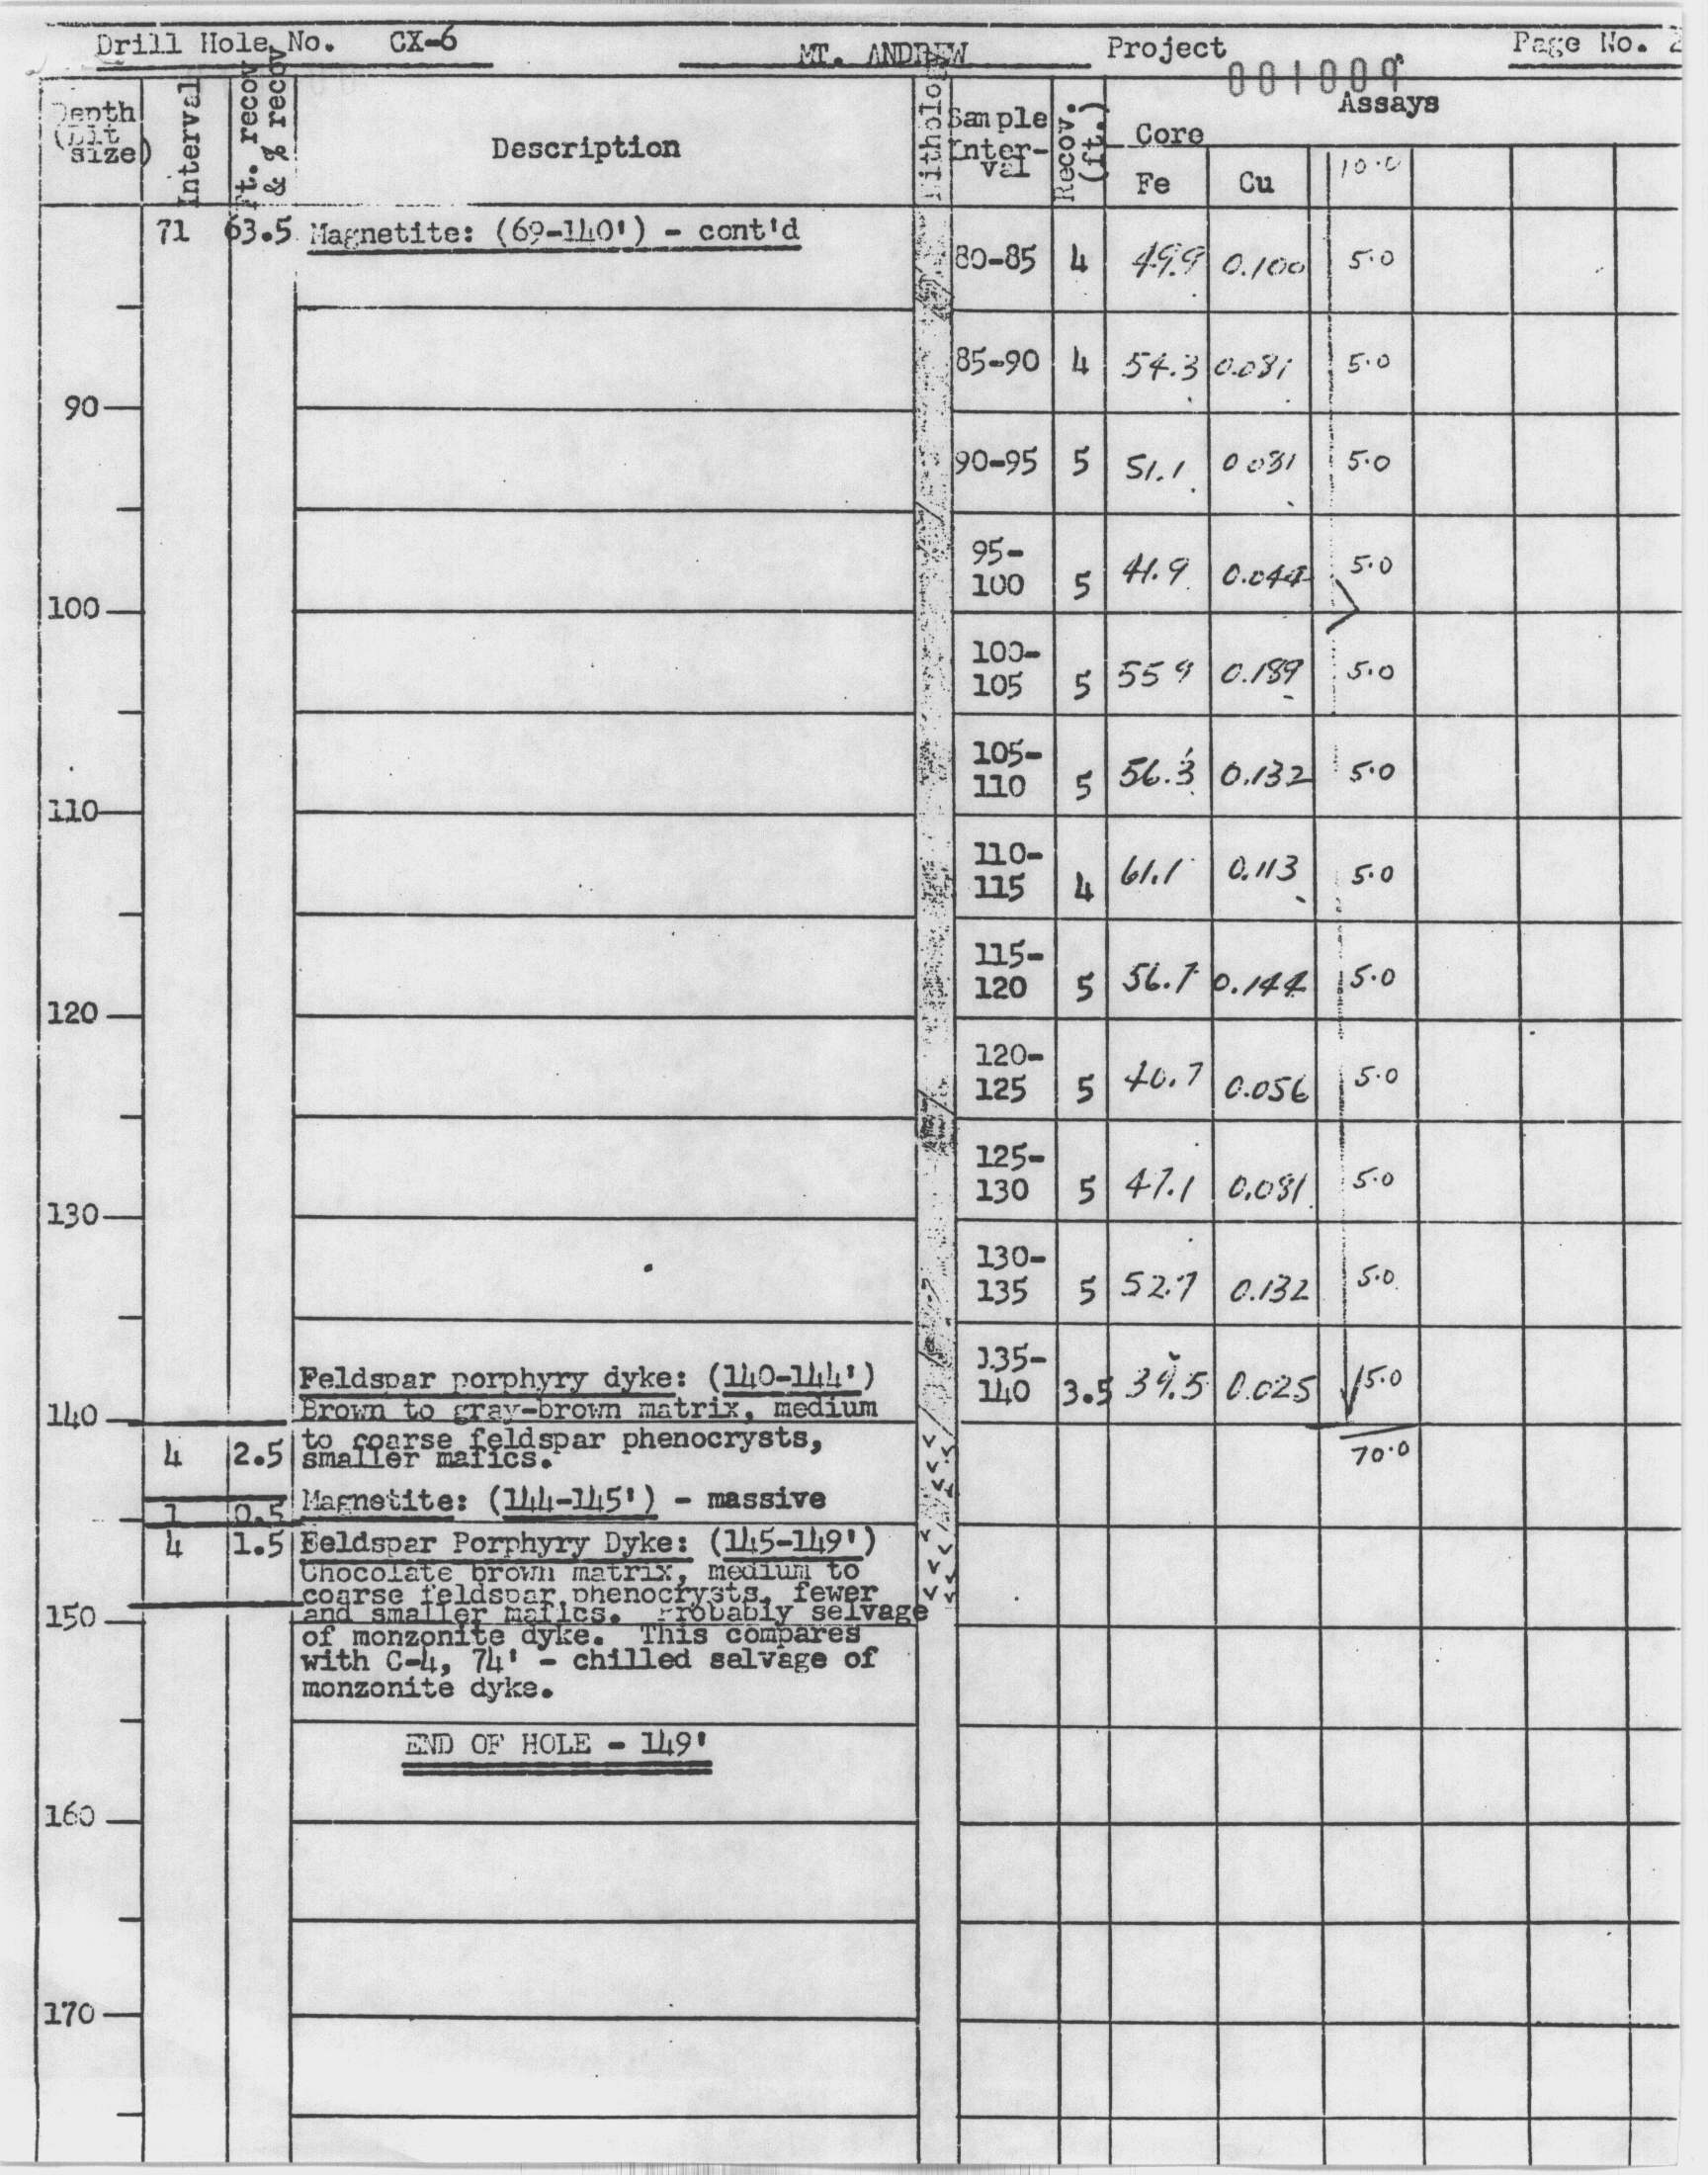 Drill Hole No. CX-6 MT. ANDREW Project Page No. 2
001009
Depth (Bit size) Interval Ft. recov & % recov Description Lithology Sample Inter-val Recov. (ft.) Assays
Core
Fe Cu 10.0
71 63.5 Magnetite: (69-140') - cont'd
80-85 4 49.9 0.100 5.0
85-90 4 54.3 0.081 5.0
90
90-95 5 51.1 0.081 5.0
95-
100 5 41.9 0.044 5.0
100
100-
105 5 55 9 0.189 5.0
105-
110 5 56.3 0.132 5.0
110
110-
115 4 61.1 0.113 5.0
115-
120 5 56.7 0.144 5.0
120
120-
125 5 40.7 0.056 5.0
125-
130 5 47.1 0.081 5.0
130
130-
135 5 52.7 0.132 5.0
135-
140 3.5 39.5 0.025 5.0
70.0
Feldspar porphyry dyke: (140-144')
140 Brown to gray-brown matrix, medium
to coarse feldspar phenocrysts,
4 2.5 smaller mafics.
1 0.5 Magnetite: (144-145') - massive
4 1.5 Feldspar Porphyry Dyke: (145-149')
Chocolate brown matrix, medium to
coarse feldspar phenocrysts, fewer
150 and smaller mafics. Probably selvage
of monzonite dyke. This compares
with C-4, 74' - chilled selvage of
monzonite dyke.
END OF HOLE - 149'
160
170